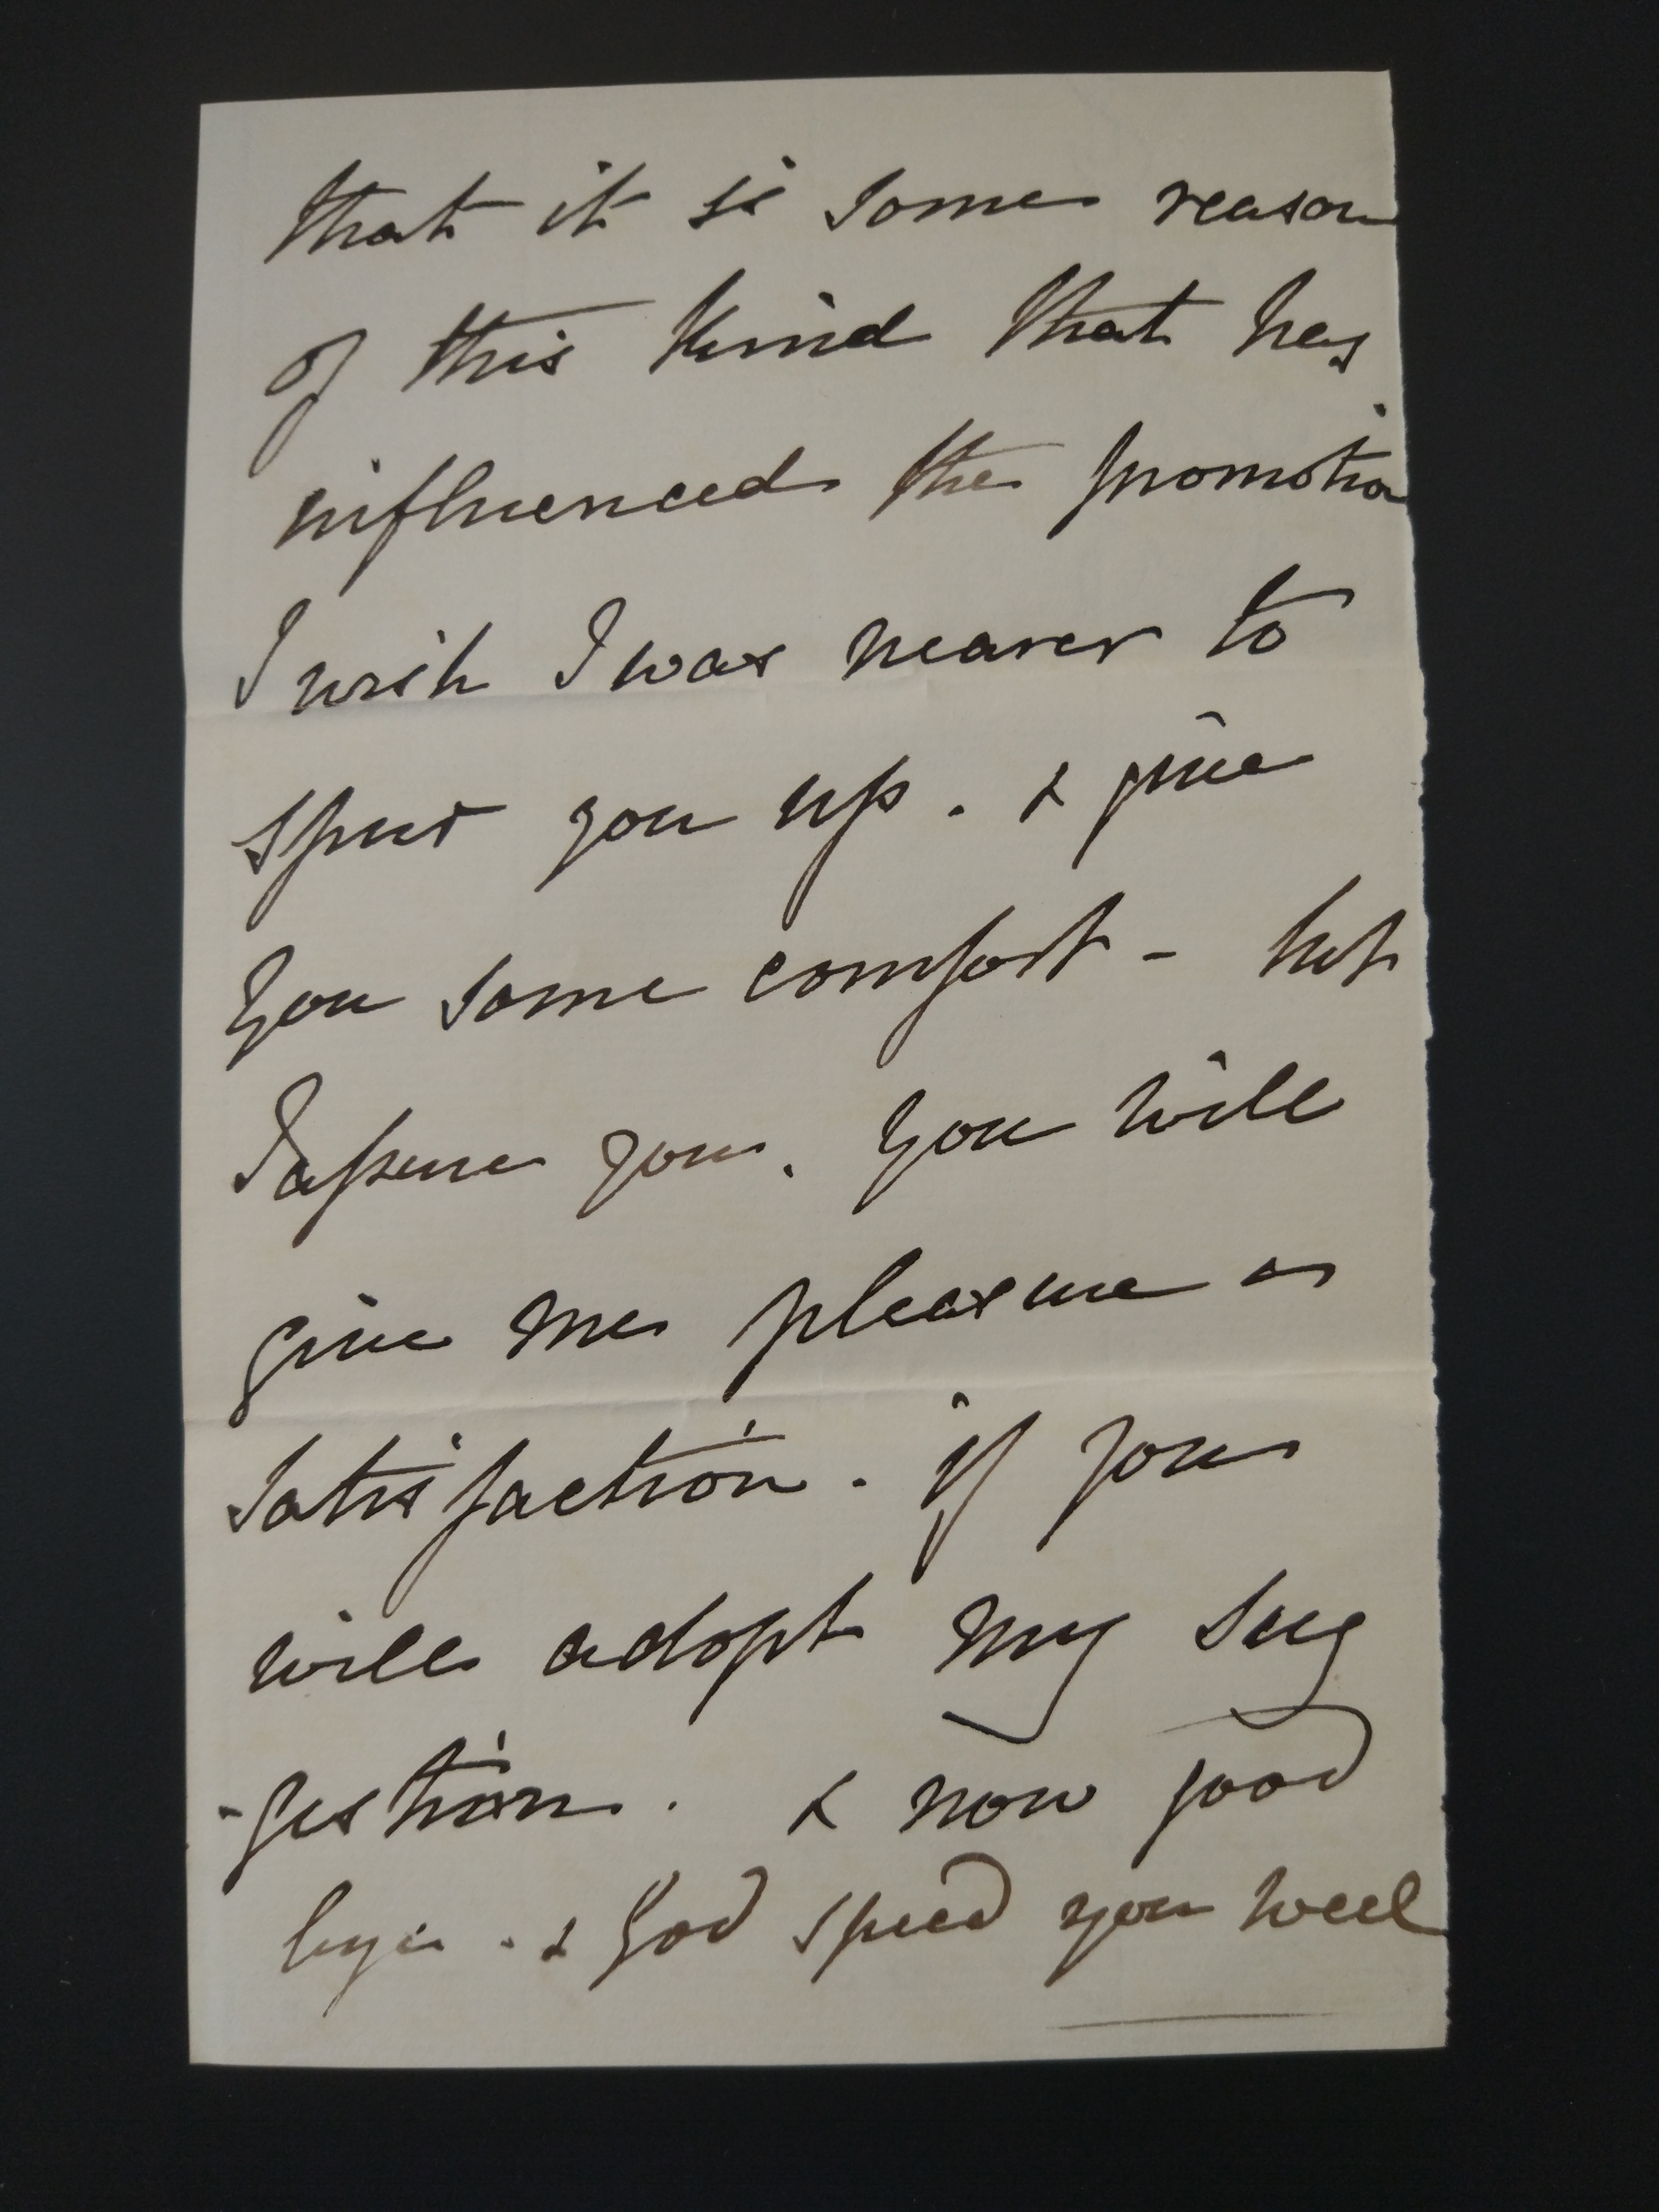 that it is some reason
of this kind that has
influenced the promotion
I wish I was nearer to
spur you up. & give
you some comfort - but
I assure you. you will
give me pleasure &
satisfaction. if you
will adopt my sug
-gestion. & now good
bye. & God speed you well